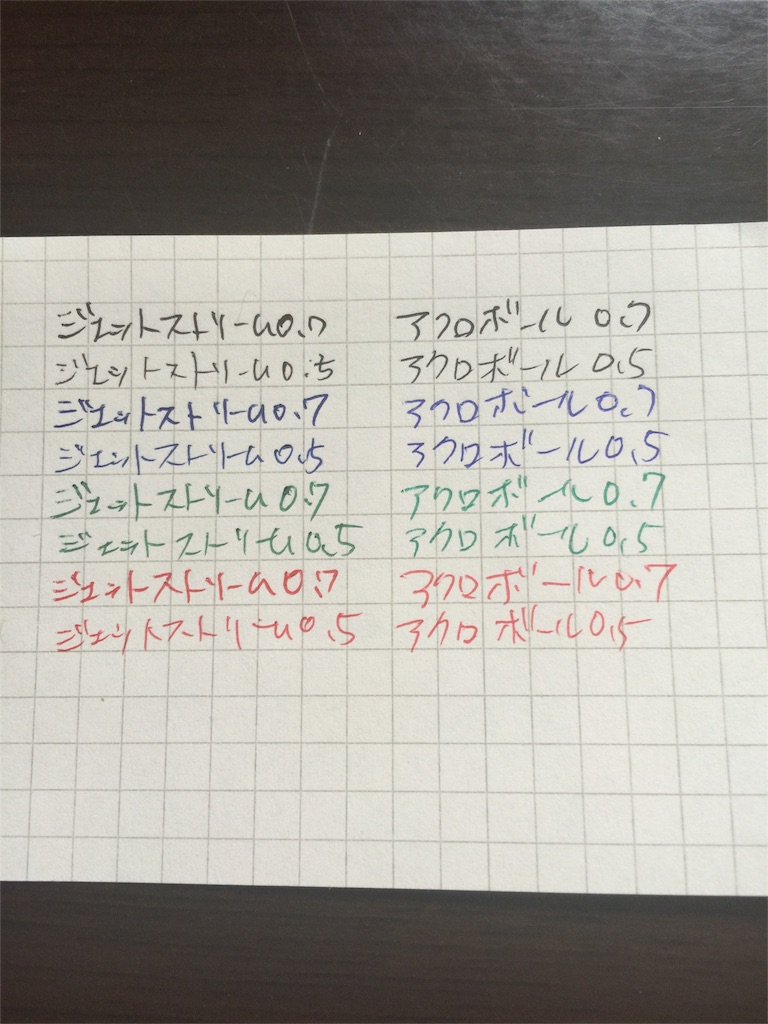 ジェットストリーム0.7 アクロボール 0.7
ジェットストリーム0.5 アクロボール 0.5
ジェットストリーム0.7 アクロボール0.7
ジェットストリーム0.5 アクロボール0.5
ジェットストリーム0.7 アクロボール0.7
ジェットストリーム0.5 アクロボール0.5
ジェットストリーム0.7 アクロボール0.7
ジェットストリーム0.5 アクロボール0.5